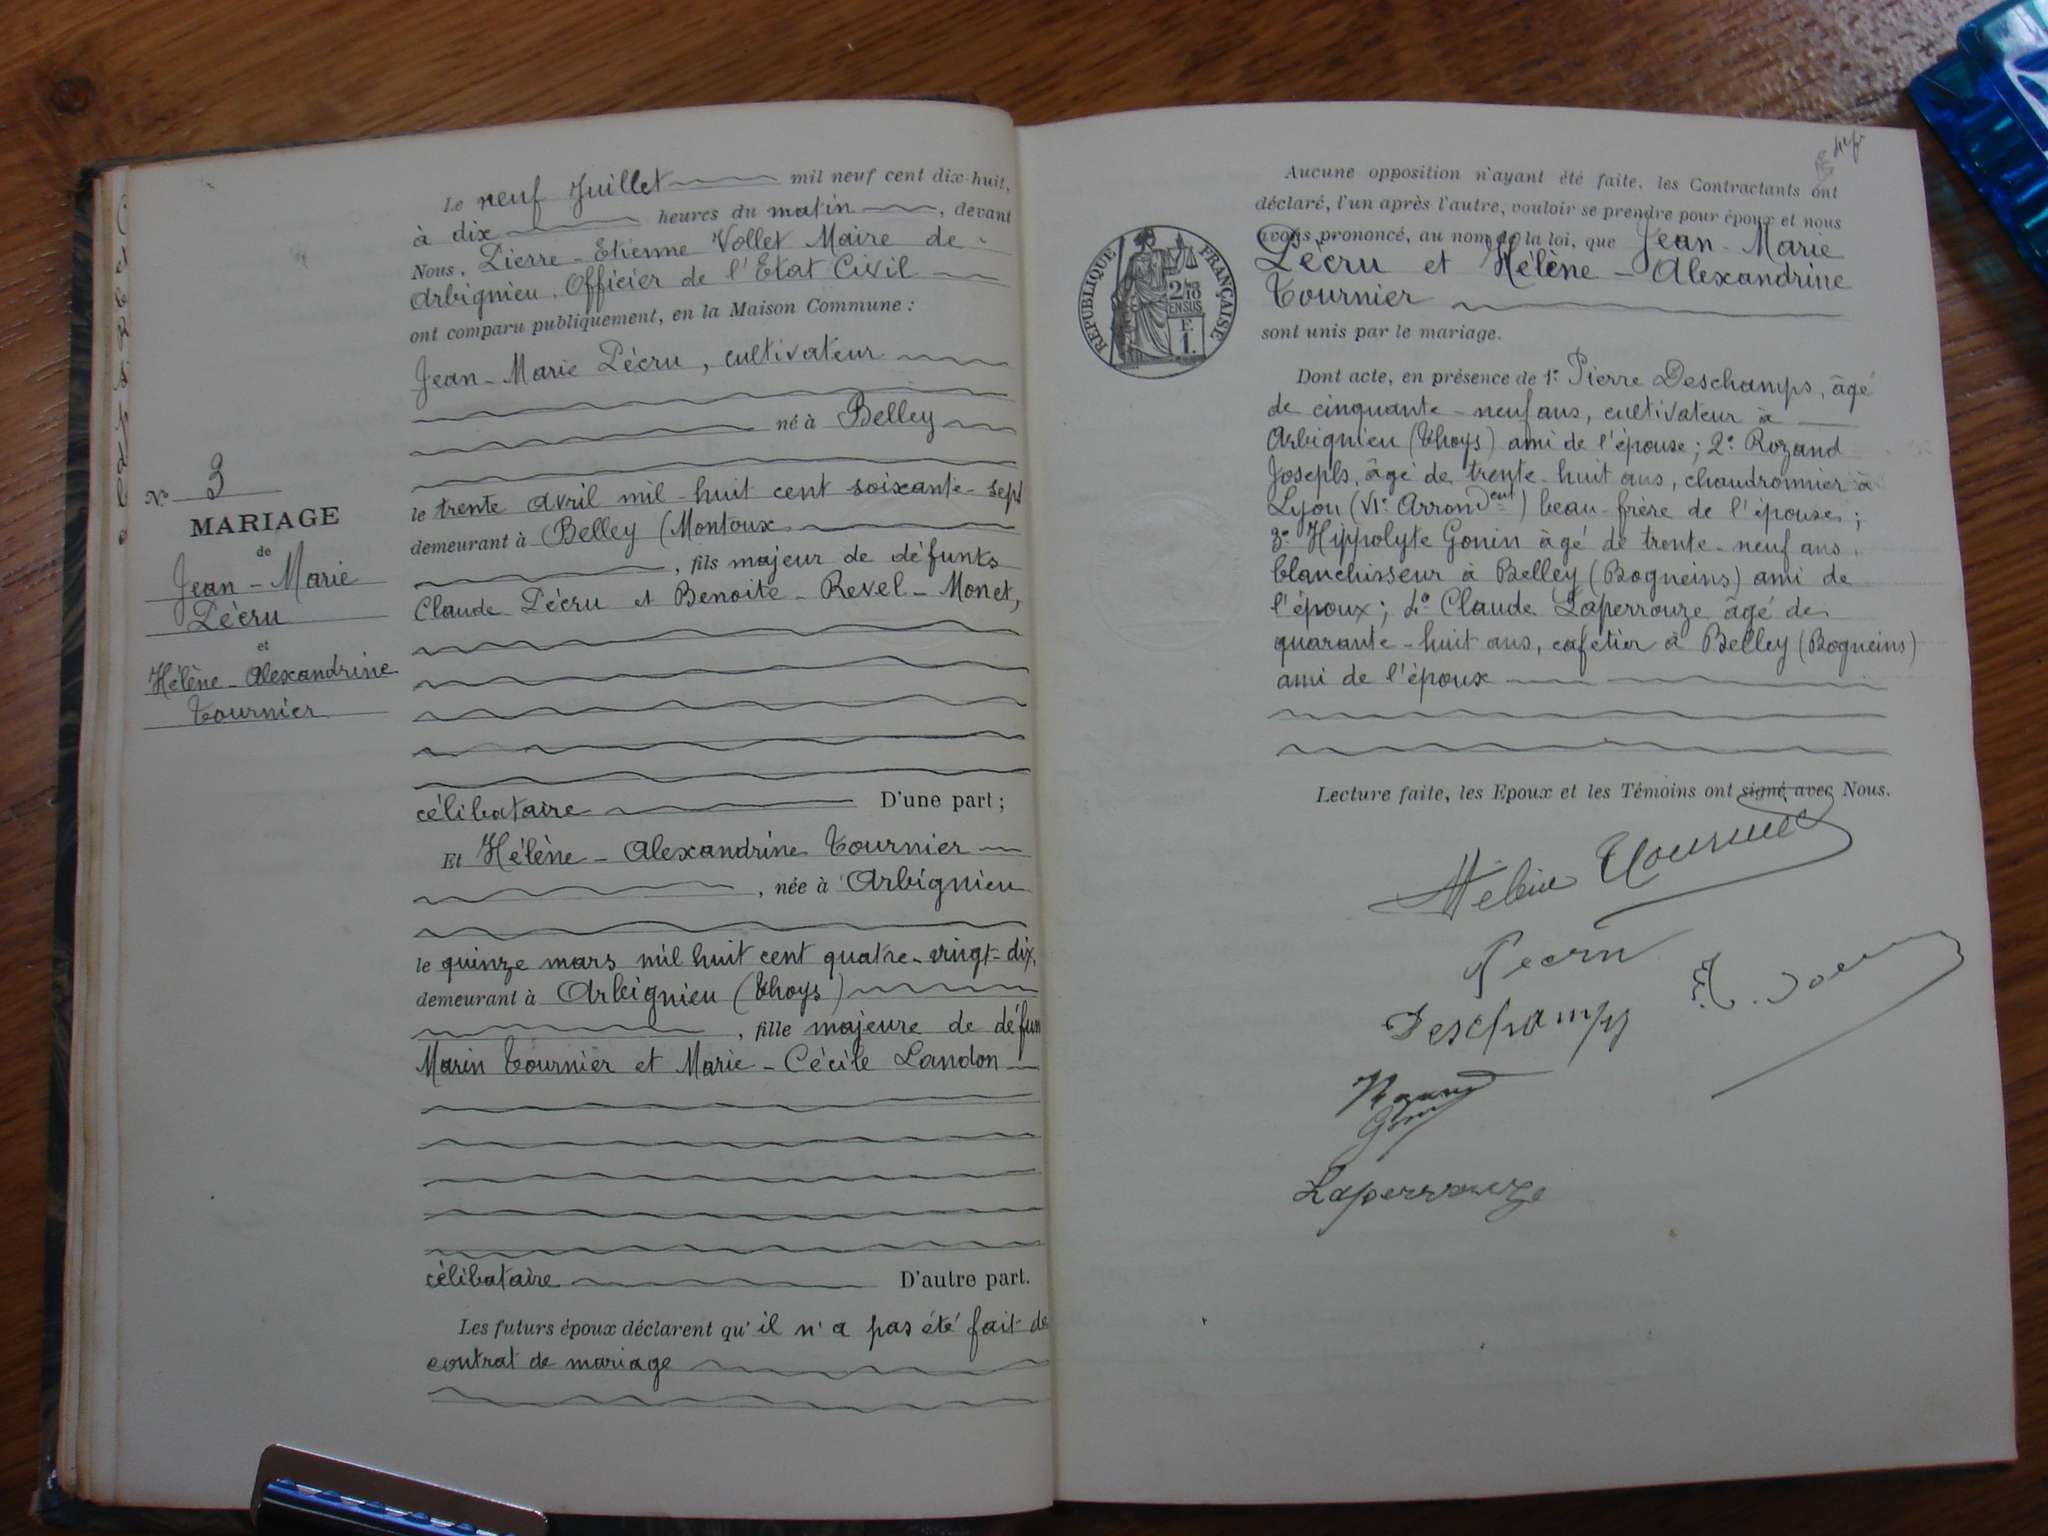 Le neuf Juillet mil neuf cent dix-huit,
à dix heures du matin, devant
Nous, Pierre-Etienne Vollet Maire de
Arbignieu. Officier de l'Etat Civil
ont comparu publiquement, en la Maison Commune :
Jean-Marie Pécru, cultivateur
né à Belley
le trente avril mil-huit cent soixante-sept
demeurant à Belley (Montoux
, fils majeur de défunts
Claude Pécru et Benoite-Revel-Monet,
célibataire D'une part ;
Et Hélène-Alexandrine Tournier
, née à Arbignieu
le quinze mars mil huit cent quatre-vingt-dix,
demeurant à Arbignieu (Thoys)
, fille majeure de défun
Marin Tournier et Marie-Cécile Landon
célibataire D'autre part.
Les futurs époux déclarent qu'il n'a pas été fait de
contrat de mariage
No 3
MARIAGE
de
Jean-Marie
Pécru
et
Hélène-Alexandrine
Tournier
Aucune opposition n'ayant été faite, les Contractants ont
déclaré, l'un après l'autre, vouloir se prendre pour époux et nous
avons prononcé, au nom de la loi, que Jean-Marie
Pécru et Hélène-Alexandrine
Tournier
sont unis par le mariage.
RÉPUBLIQUE FRANÇAISE
2/10
EN SUS
F.
1.
Dont acte, en présence de 1º Pierre Deschamps, âgé
de cinquante-neuf ans, cultivateur à
Arbignieu (Thoys) ami de l'épouse ; 2º Rozand
Joseph, âgé de trente-huit ans, chaudronnier à
Lyon (VIe Arrondent) beau-frère de l'épouse ;
3º Hippolyte Gonin âgé de trente-neuf ans,
blanchisseur à Belley (Bogneins) ami de
l'époux ; 4º Claude Laperrouze âgé de
quarante-huit ans, cafetier à Belley (Bogneins)
ami de l'époux
Lecture faite, les Epoux et les Témoins ont signé avec Nous.
Hélène Tournier
Pecru
Deschamps
Rozand
Laperrouze